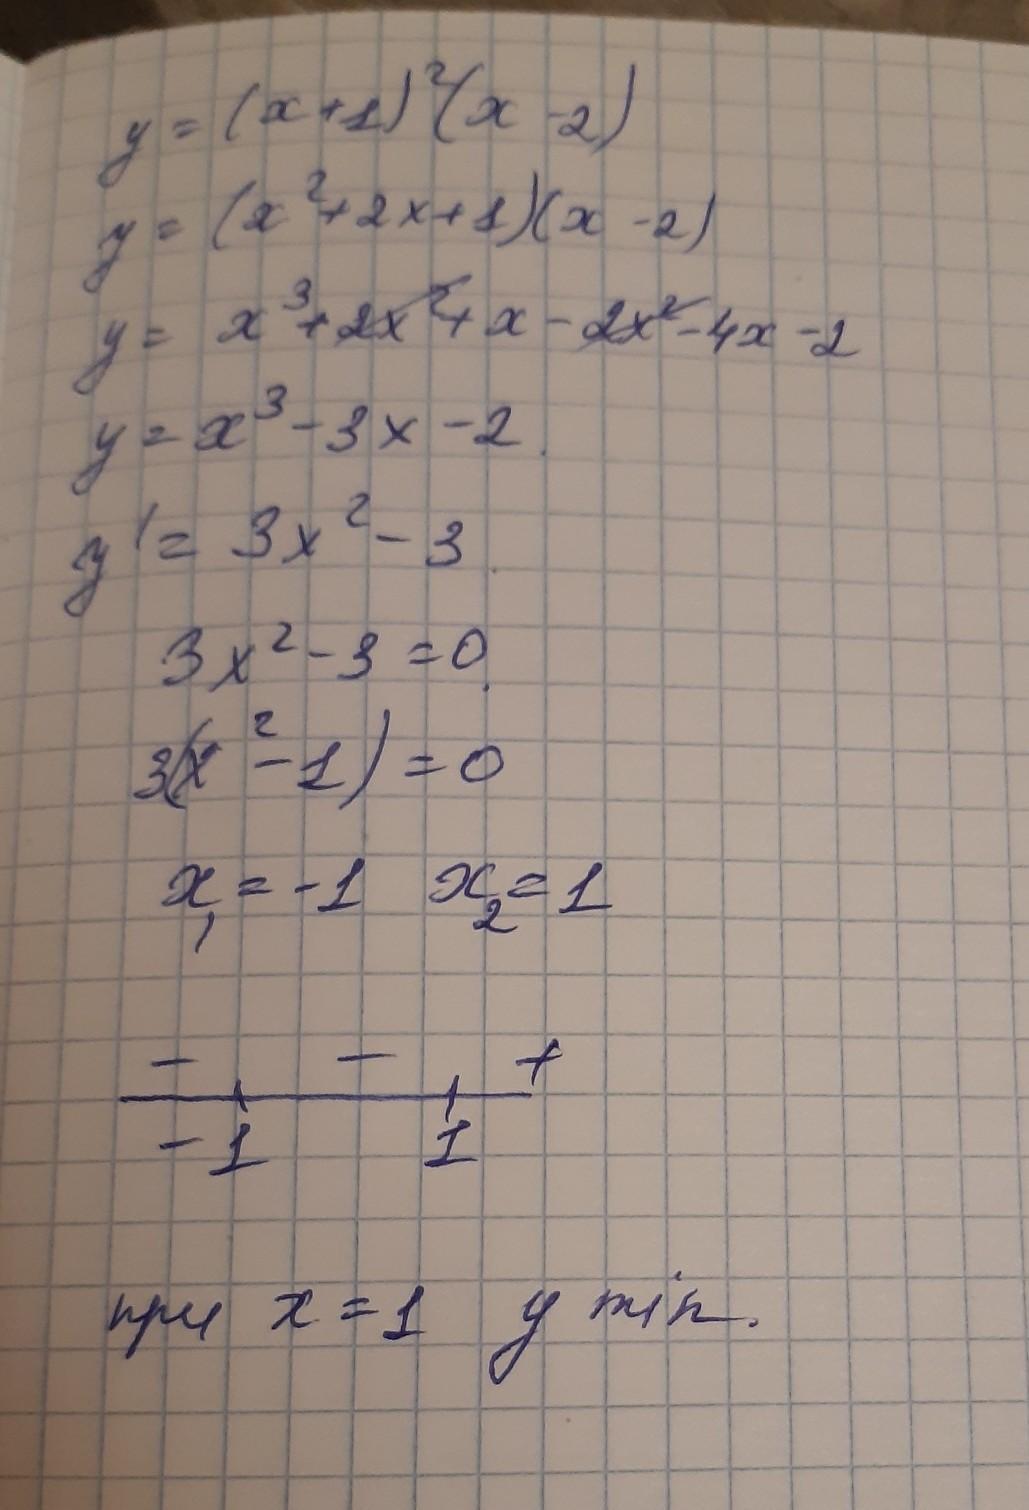 y = (x+1)²(x-2)
y = (x²+2x+1)(x-2)
y = x³+2x²+x-2x²-4x-2
y = x³-3x-2
y' = 3x²-3
3x²-3=0
3(x²-1)=0
x₁=-1 x₂=1
- - +
-1 1
при x=1 y min.